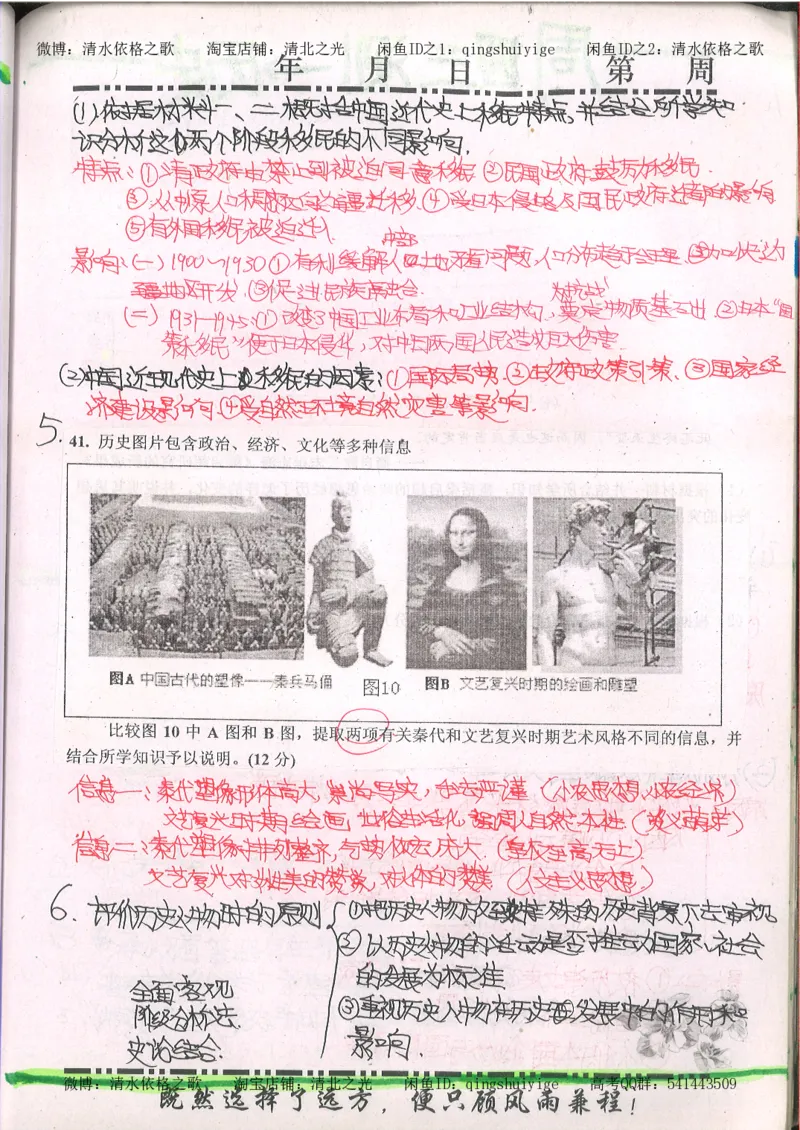 微博：清水依格之歌 淘宝店铺：清北之光 闲鱼ID之1：qingshuiyige 闲鱼ID之2：清水依格之歌
年 月 日 第 周
(1)依据材料一、二概括中国近代史上移民特点，并结合所学知
识分析这两个阶段移民的不同影响．
特点：①清政府由禁止到被迫同意移民 ②民国政府鼓励移民
③从中原人口稠密区向边疆迁移 ④受日本侵略及国民政府迁都的影响
⑤有外国移民被迫迁入
影响：(一) 1900～1930 ①有利缓解人口土地矛盾问题，人口分布趋于合理. ②加快边
疆地区开发. ③促进民族融合.
(二) 1931—1945：①改变了中国工业布局和工业结构，为抗战奠定物质基础 ②日本“国
策移民”便于日本侵华，对中日两国人民造成巨大伤害.
(2)中国近现代史上移民的因素：①国际局势. ②政府政策引导. ③国家经
济建设影响 ④受自然环境自然灾害等影响.
5.
41. 历史图片包含政治、经济、文化等多种信息
图A 中国古代的塑像——秦兵马俑 图10 图B 文艺复兴时期的绘画和雕塑
比较图 10 中 A 图和 B 图，提取两项有关秦代和文艺复兴时期艺术风格不同的信息，并
结合所学知识予以说明。(12 分)
信息一：秦代塑像形体高大，崇尚写实，手法严谨 (小农思想，小农经济)
文艺复兴时期绘画，世俗生活化，强调人自然之本性. (资义萌芽)
信息二：秦代塑像排列整齐，气势恢宏庞大. (皇权至高无上)
文艺复兴对个性美的赞赏，对人体的赞美 (人文主义思想)
6. 评价历史人物时的原则 ①把历史人物放到特殊的历史背景下去审视
②以历史人物的活动是否推动国家、社会
的发展为标准
全面客观
阶级分析法 ③重视历史人物在历史发展中的作用和
史论结合. 影响.
微博：清水依格之歌 淘宝店铺：清北之光 闲鱼ID：qingshuiyige 高考QQ群：541443509
既然选择了远方，便只顾风雨兼程！